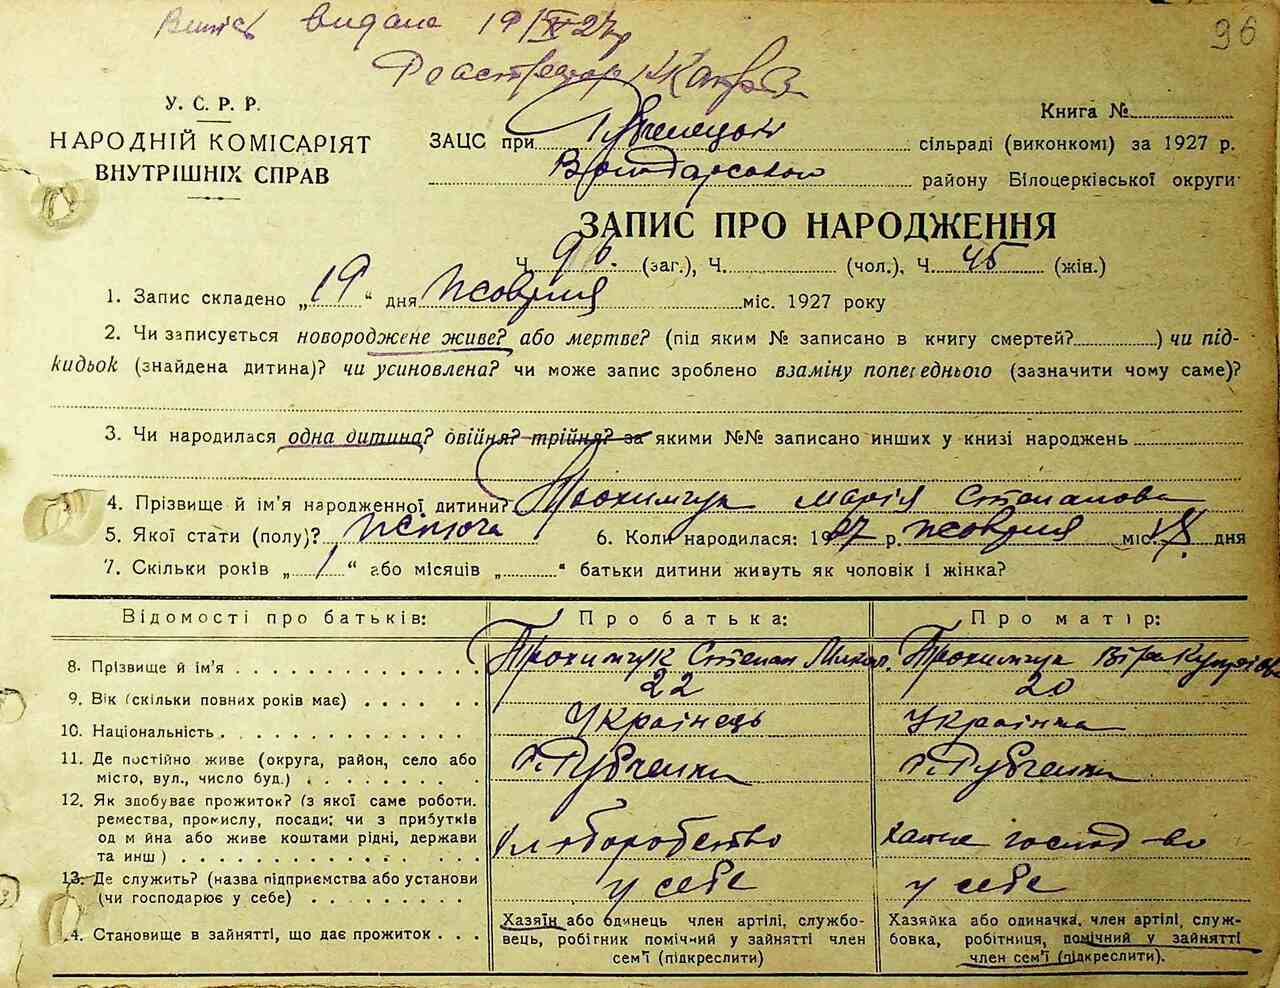 Витяг видано 19/IX 27 р
96
У. С. Р. Р.
НАРОДНІЙ КОМІСАРІЯТ
ВНУТРІШНІХ СПРАВ
Книга №
ЗАЦС при сільраді (виконкомі) за 1927 р.
району Білоцерківської округи
ЗАПИС ПРО НАРОДЖЕННЯ
Ч. 96. (заг.), Ч. (чол.), Ч. 45 (жін.)
1. Запис складено „19“ дня жовтня міс. 1927 року
2. Чи записується новороджене живе? або мертве? (під яким № записано в книгу смертей? ) чи під-
кидьок (знайдена дитина)? чи усиновлена? чи може запис зроблено взаміну попереднього (зазначити чому саме)?
3. Чи народилася одна дитина? двійня? трійня? за якими №№ записано инших у книзі народжень
4. Прізвище й ім'я народженної дитини? Трохимчук Марія Степанова
5. Якої стати (полу)? жіноча 6. Коли народилася: 1927 р. жовтня міс. 18 дня
7. Скільки років „1“ або місяців „ “ батьки дитини живуть як чоловік і жінка?
Відомості про батьків: Про батька: Про матір:
8. Прізвище й ім'я Трохимчук Степан Микол. Трохимчук Віра
9. Вік (скільки повних років має) 22 20
10. Національність Українець Українка
11. Де постійно живе (округа, район, село або с. Рубченки с. Рубченки
місто, вул., число буд.)
12. Як здобуває прожиток? (з якої саме роботи.
ремества, промислу, посади; чи з прибутків
од майна або живе коштами рідні, держави хліборобство хатнє господ-во
та инш)
13. Де служить? (назва підприємства або установи у себе у себе
(чи господарює у себе)
14. Становище в зайнятті, що дає прожиток
Хазяїн або одинець член артілі, службо-
вець, робітник помічний у зайнятті член
сем'ї (підкреслити)
Хазяйка або одиначка, член артілі, служ-
бовка, робітниця, помічний у зайнятті
член сем'ї (підкреслити).